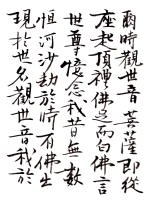 爾時觀世音菩薩即從
座起頂禮佛足而白佛言
世尊憶念我昔無數
恒河沙劫於時有佛出
現於世名觀世音我於